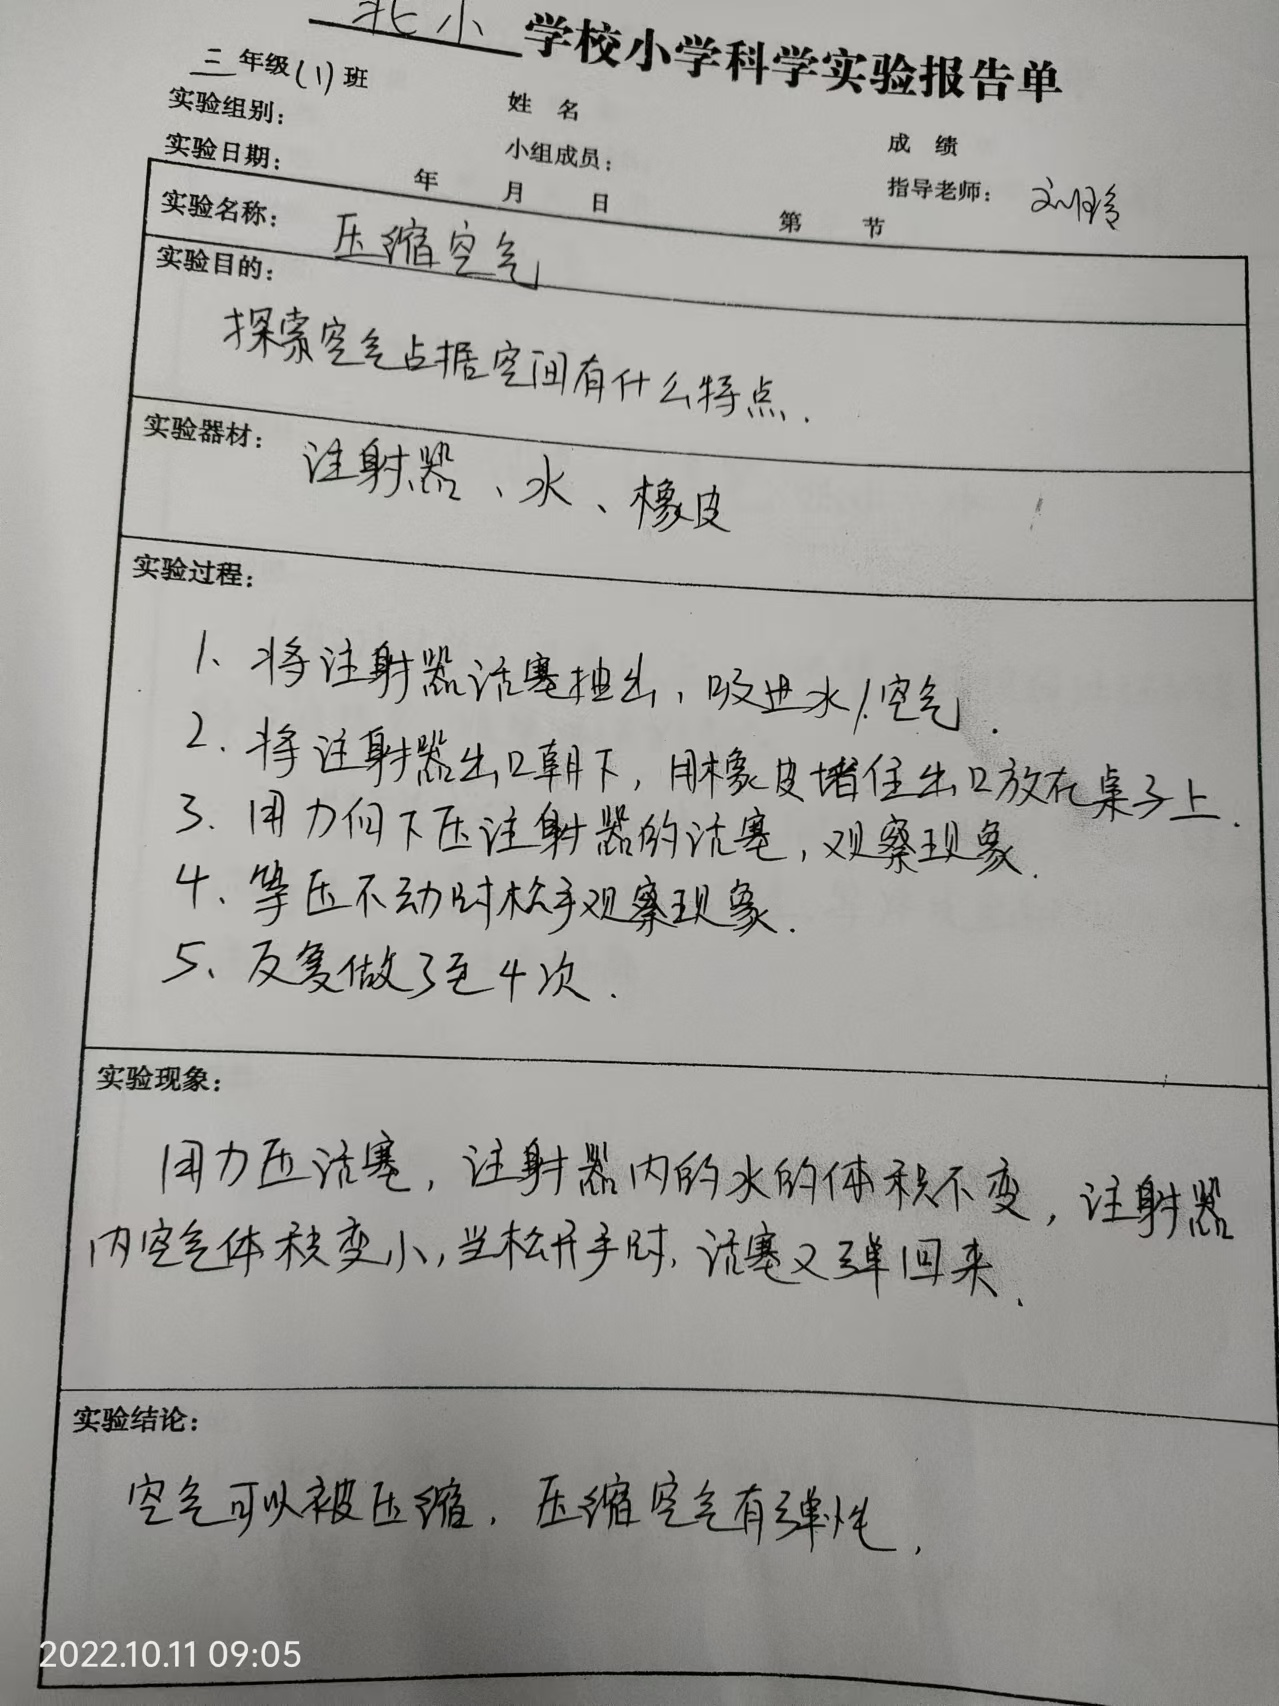 北小 学校小学科学实验报告单
三年级(1)班
实验组别: 姓 名 成 绩
实验日期: 年 月 日 小组成员: 第 节 指导老师: 刘玲
实验名称: 压缩空气
实验目的:
探索空气占据空间有什么特点.
实验器材: 注射器、水、橡皮
实验过程:
1、将注射器活塞抽出,吸进水/空气.
2.将注射器出口朝下,用橡皮堵住出口放在桌子上.
3.用力向下压注射器的活塞,观察现象.
4、等压不动时松手观察现象.
5、反复做3至4次.
实验现象:
用力压活塞,注射器内的水的体积不变,注射器
内空气体积变小,当松开手时,活塞又弹回来.
实验结论:
空气可以被压缩,压缩空气有弹性.
2022.10.11 09:05